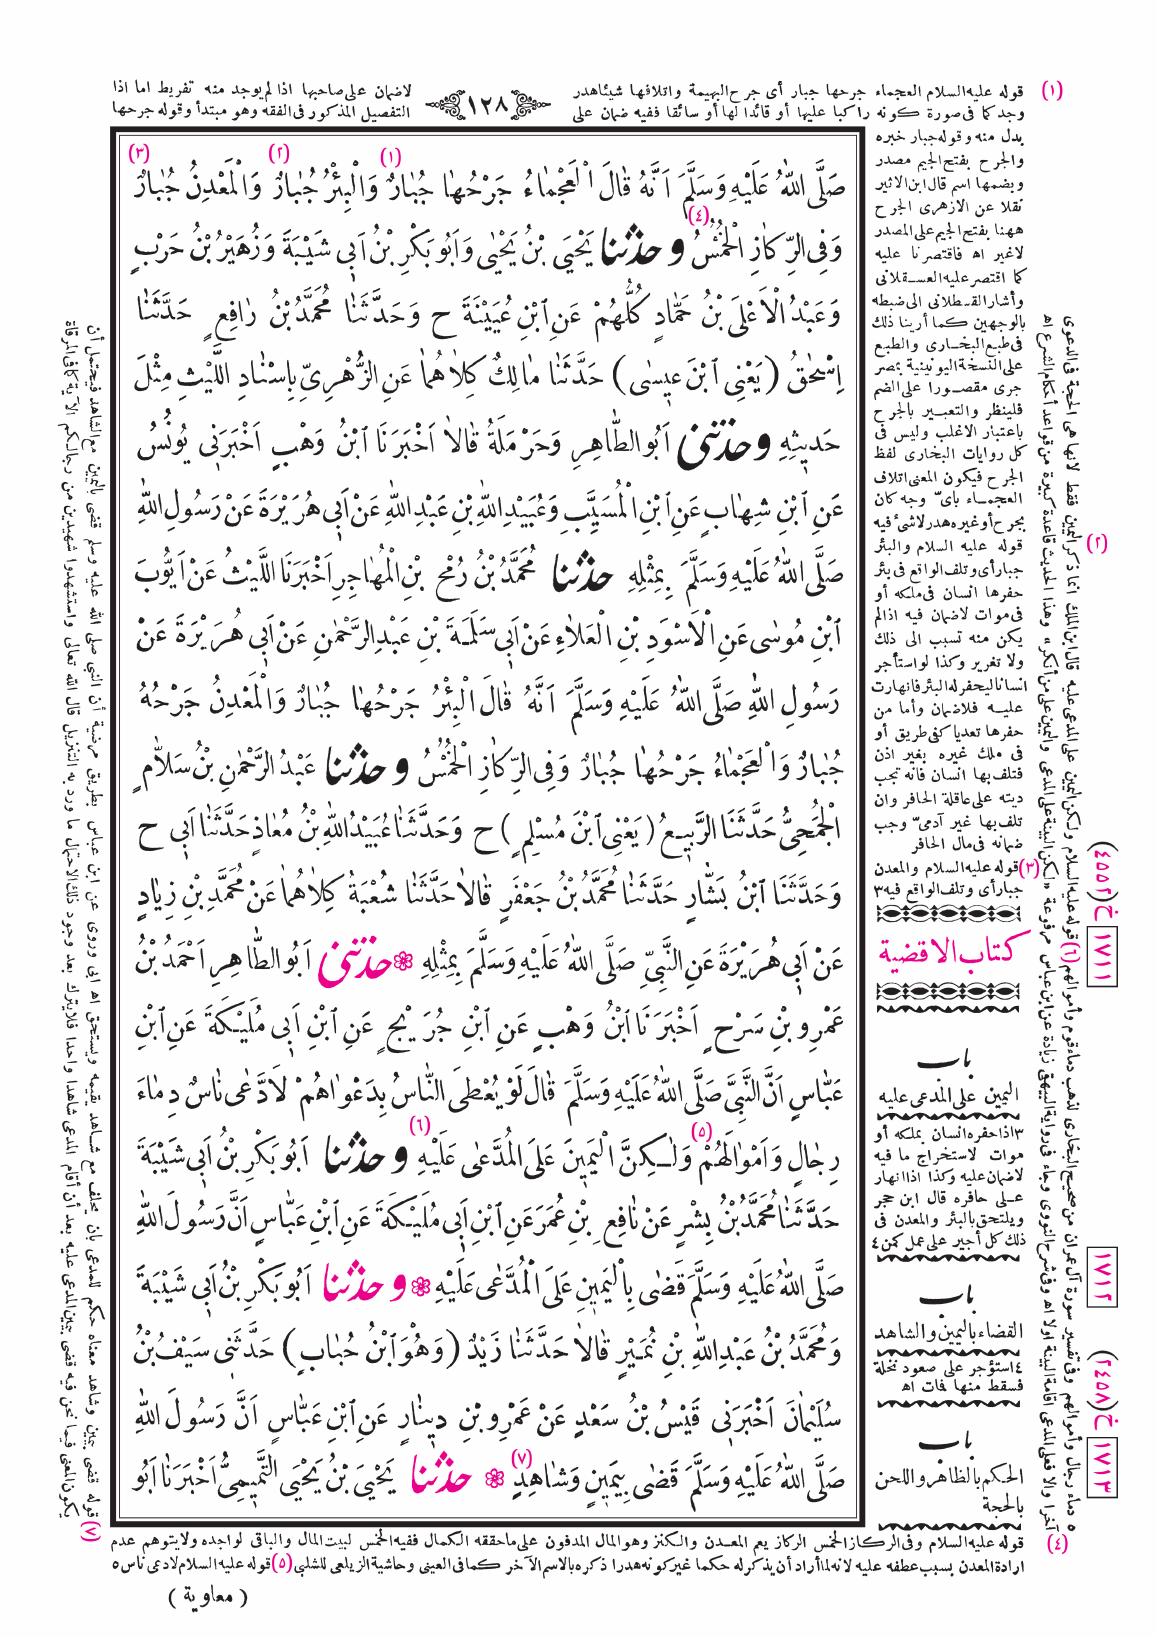 (١) قوله عليه السلام العجماء جرحها جبار أى جرح البهيمة واتلافها شيئا هدر
وجد كما فى صورة كونه راكبا عليها أو قائدا لها أو سائقا ففيه ضمان على
١٢٨
لاضمان على صاحبها اذا لم يوجد منه تفريط اما اذا
التفصيل المذكور فى الفقه وهو مبتدأ وقوله جرحها
(١) (٢) (٣)
صَلَّى اللهُ عَلَيْهِ وَسَلَّمَ اَنَّهُ قَالَ الْعَجْمَاءُ جَرْحُهَا جُبَارٌ وَالْبِئْرُ جُبَارٌ وَالْمَعْدِنُ جُبَارٌ
وَفِى الرِّكَازِ الْخُمُسُ (٤) وحدثنا يَحْيَى بْنُ يَحْيَى وَاَبُو بَكْرِ بْنُ اَبِى شَيْبَةَ وَزُهَيْرُ بْنُ حَرْبٍ
وَعَبْدُ الْاَعْلَى بْنُ حَمَّادٍ كُلُّهُمْ عَنِ ابْنِ عُيَيْنَةَ ح وَحَدَّثَنَا مُحَمَّدُ بْنُ رَافِعٍ حَدَّثَنَا
اِسْحٰقُ (يَعْنِى ابْنَ عِيسَى) حَدَّثَنَا مَالِكٌ كِلَاهُمَا عَنِ الزُّهْرِىِّ بِاِسْنَادِ اللَّيْثِ مِثْلَ
حَدِيثِهِ وحدثنى اَبُو الطَّاهِرِ وَحَرْمَلَةُ قَالَا اَخْبَرَنَا ابْنُ وَهْبٍ اَخْبَرَنِى يُونُسُ
عَنِ ابْنِ شِهَابٍ عَنِ ابْنِ الْمُسَيَّبِ وَعُبَيْدِ اللهِ بْنِ عَبْدِ اللهِ عَنْ اَبِى هُرَيْرَةَ عَنْ رَسُولِ اللهِ
صَلَّى اللهُ عَلَيْهِ وَسَلَّمَ بِمِثْلِهِ حدثنا مُحَمَّدُ بْنُ رُمْحِ بْنِ الْمُهَاجِرِ اَخْبَرَنَا اللَّيْثُ عَنْ اَيُّوبَ
ابْنِ مُوسَى عَنِ الْاَسْوَدِ بْنِ الْعَلَاءِ عَنْ اَبِى سَلَمَةَ بْنِ عَبْدِ الرَّحْمٰنِ عَنْ اَبِى هُرَيْرَةَ عَنْ
رَسُولِ اللهِ صَلَّى اللهُ عَلَيْهِ وَسَلَّمَ اَنَّهُ قَالَ الْبِئْرُ جَرْحُهَا جُبَارٌ وَالْمَعْدِنُ جَرْحُهُ
جُبَارٌ وَالْعَجْمَاءُ جَرْحُهَا جُبَارٌ وَفِى الرِّكَازِ الْخُمُسُ وحدثنا عَبْدُ الرَّحْمٰنِ بْنُ سَلَّامٍ
الْجُمَحِىُّ حَدَّثَنَا الرَّبِيعُ (يَعْنِى ابْنَ مُسْلِمٍ) ح وَحَدَّثَنَا عُبَيْدُ اللهِ بْنُ مُعَاذٍ حَدَّثَنَا اَبِى ح
وَحَدَّثَنَا ابْنُ بَشَّارٍ حَدَّثَنَا مُحَمَّدُ بْنُ جَعْفَرٍ قَالَا حَدَّثَنَا شُعْبَةُ كِلَاهُمَا عَنْ مُحَمَّدِ بْنِ زِيَادٍ
عَنْ اَبِى هُرَيْرَةَ عَنِ النَّبِىِّ صَلَّى اللهُ عَلَيْهِ وَسَلَّمَ بِمِثْلِهِ ❁ حدثنى اَبُو الطَّاهِرِ اَحْمَدُ بْنُ
عَمْرِو بْنِ سَرْحٍ اَخْبَرَنَا ابْنُ وَهْبٍ عَنِ ابْنِ جُرَيْجٍ عَنِ ابْنِ اَبِى مُلَيْكَةَ عَنِ ابْنِ
عَبَّاسٍ اَنَّ النَّبِىَّ صَلَّى اللهُ عَلَيْهِ وَسَلَّمَ قَالَ لَوْ يُعْطَى النَّاسُ بِدَعْوَاهُمْ لَادَّعَى نَاسٌ دِمَاءَ
رِجَالٍ وَاَمْوَالَهُمْ (٥) وَلٰكِنَّ الْيَمِينَ عَلَى الْمُدَّعَى عَلَيْهِ (٦) وحدثنا اَبُو بَكْرِ بْنُ اَبِى شَيْبَةَ
حَدَّثَنَا مُحَمَّدُ بْنُ بِشْرٍ عَنْ نَافِعِ بْنِ عُمَرَ عَنِ ابْنِ اَبِى مُلَيْكَةَ عَنِ ابْنِ عَبَّاسٍ اَنَّ رَسُولَ اللهِ
صَلَّى اللهُ عَلَيْهِ وَسَلَّمَ قَضَى بِالْيَمِينِ عَلَى الْمُدَّعَى عَلَيْهِ ❁ وحدثنا اَبُو بَكْرِ بْنُ اَبِى شَيْبَةَ
وَمُحَمَّدُ بْنُ عَبْدِ اللهِ بْنِ نُمَيْرٍ قَالَا حَدَّثَنَا زَيْدٌ (وَهُوَ ابْنُ حُبَابٍ) حَدَّثَنِى سَيْفُ بْنُ
سُلَيْمَانَ اَخْبَرَنِى قَيْسُ بْنُ سَعْدٍ عَنْ عَمْرِو بْنِ دِينَارٍ عَنِ ابْنِ عَبَّاسٍ اَنَّ رَسُولَ اللهِ
صَلَّى اللهُ عَلَيْهِ وَسَلَّمَ قَضَى بِيَمِينٍ وَشَاهِدٍ (٧) ❁ حدثنا يَحْيَى بْنُ يَحْيَى التَّمِيمِىُّ اَخْبَرَنَا اَبُو
بدل منه وقوله جبار خبره
والجرح بفتح الجيم مصدر
وبضمها اسم قال ابن الاثير
نقلا عن الازهرى الجرح
ههنا بفتح الجيم على المصدر
لاغير اه فاقتصرنا عليه
كما اقتصر عليه العسقلانى
وأشار القسطلانى الى ضبطه
بالوجهين كما أرينا ذلك
فى طبع البخارى والطبع
على النسخة اليونينية بمصر
جرى مقصورا على الضم
فلينظر والتعبير بالجرح
باعتبار الاغلب وليس فى
كل روايات البخارى لفظ
الجرح فيكون المعنى اتلاف
العجماء باىّ وجه كان
بجرح أو غيره هدر لاشئ فيه
قوله عليه السلام والبئر (٢)
جبار أى وتلف الواقع فى بئر
حفرها انسان فى ملكه أو
فى موات لاضمان فيه اذا لم
يكن منه تسبب الى ذلك
ولا تغرير وكذا لو استأجر
انسانا ليحفر له البئر فانهارت
عليه فلاضمان وأما من
حفرها تعديا كفى طريق أو
فى ملك غيره بغير اذن
فتلف بها انسان فانه تجب
ديته على عاقلة الحافر وان
تلف بها غير آدمىّ وجب
ضمانه فى مال الحافر
(٣) قوله عليه السلام والمعدن
جبار أى وتلف الواقع فيه ٣
كتاب الاقضية
باب
اليمين على المدعى عليه
٣ اذا حفره انسان بملكه أو
موات لاستخراج ما فيه
لاضمان عليه وكذا اذا انهار
على حافره قال ابن حجر
ويلتحق بالبئر والمعدن فى
ذلك كل أجير على عمل كمن ٤
باب
القضاء باليمين والشاهد
٤ استؤجر على صعود نخلة
فسقط منها فمات اه
باب
الحكم بالظاهر واللحن
بالحجة
١٧١١ خ (٤٥٥٢)
١٧١٢
١٧١٣ خ (٢٤٥٨)
٥ دماء رجال وأموالهم وفى تفسير سورة آل عمران من صحيح البخارى لذهب دماء قوم وأموالهم (٦) قوله عليه السلام ولكن اليمين على المدعى عليه قال ابن الملك انما ذكر اليمين فقط لانها هى الحجة فى الدعوى
آخرا والا فعلى المدعى اقامة البينة أولا اه وفى شرح النووى وجاء فى رواية البيهقى زيادة عن ابن عباس مرفوعة «لكن البينة على المدعى واليمين على من أنكر» وهذا الحديث قاعدة كبيرة من قواعد أحكام الشرع اه
(٧) قوله قضى بيمين وشاهد معناه حكم للمدعى بان يحلف مع شاهد يقيمه ويستحق اه ابى وروى عن ابن عباس بطريق مرضية أن النبى صلى الله عليه وسلم قضى باليمين مع الشاهد فيحتمل أن
يكون المعنى فيما نحن فيه قضى بيمين المدعى عليه بعد أن أقام المدعى شاهدا واحدا فلا يترك بعد وجود ذلك الاحتمال ما ورد به التنزيل قال الله تعالى واستشهدوا شهيدين من رجالكم الآية كما فى المرقاة
(٤) قوله عليه السلام وفى الركاز الخمس الركاز يعم المعدن والكنز وهو المال المدفون على ما حققه الكمال ففيه الخمس لبيت المال والباقى لواجده ولا يتوهم عدم
ارادة المعدن بسبب عطفه عليه لانه لما أراد أن يذكر له حكما غير كونه هدرا ذكره بالاسم الآخر كما فى العينى وحاشية الزيلعى للشلبى (٥) قوله عليه السلام لادعى ناس ٥
( معاوية )